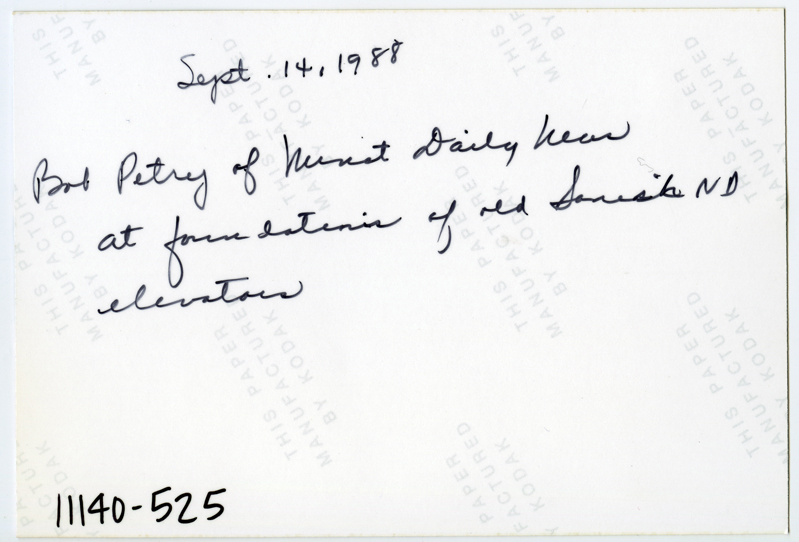 Sept. 14, 1988
Bob Petry of Minot Daily News
at foundations of old Sanish ND
elevators
11140-525
THIS PAPER
MANUFACTURED
BY KODAK